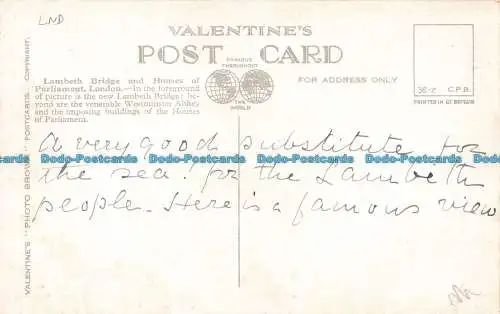 LND
VALENTINE'S
POST CARD
FAMOUS THROUGHOUT
THE WORLD
Lambeth Bridge and Houses of
Parliament, London.—In the foreground
of picture is the new Lambeth Bridge: be-
yond are the venerable Westminster Abbey
and the imposing buildings of the Houses
of Parliament.
FOR ADDRESS ONLY
36-2 C.P.B.
PRINTED IN GT BRITAIN
VALENTINE'S "PHOTO BROWN" POSTCARDS. COPYRIGHT.
A very good substitute for
the sea! for the Lambeth
people. Here is a famous view
Dodo-Postcards Dodo-Postcards Dodo-Postcards Dodo-Postcards Dodo-Postcards